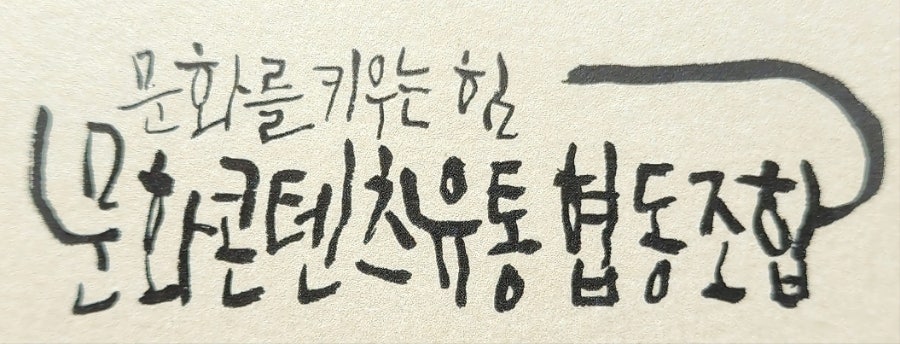 문화를 키우는 힘
문화콘텐츠유통 협동조합